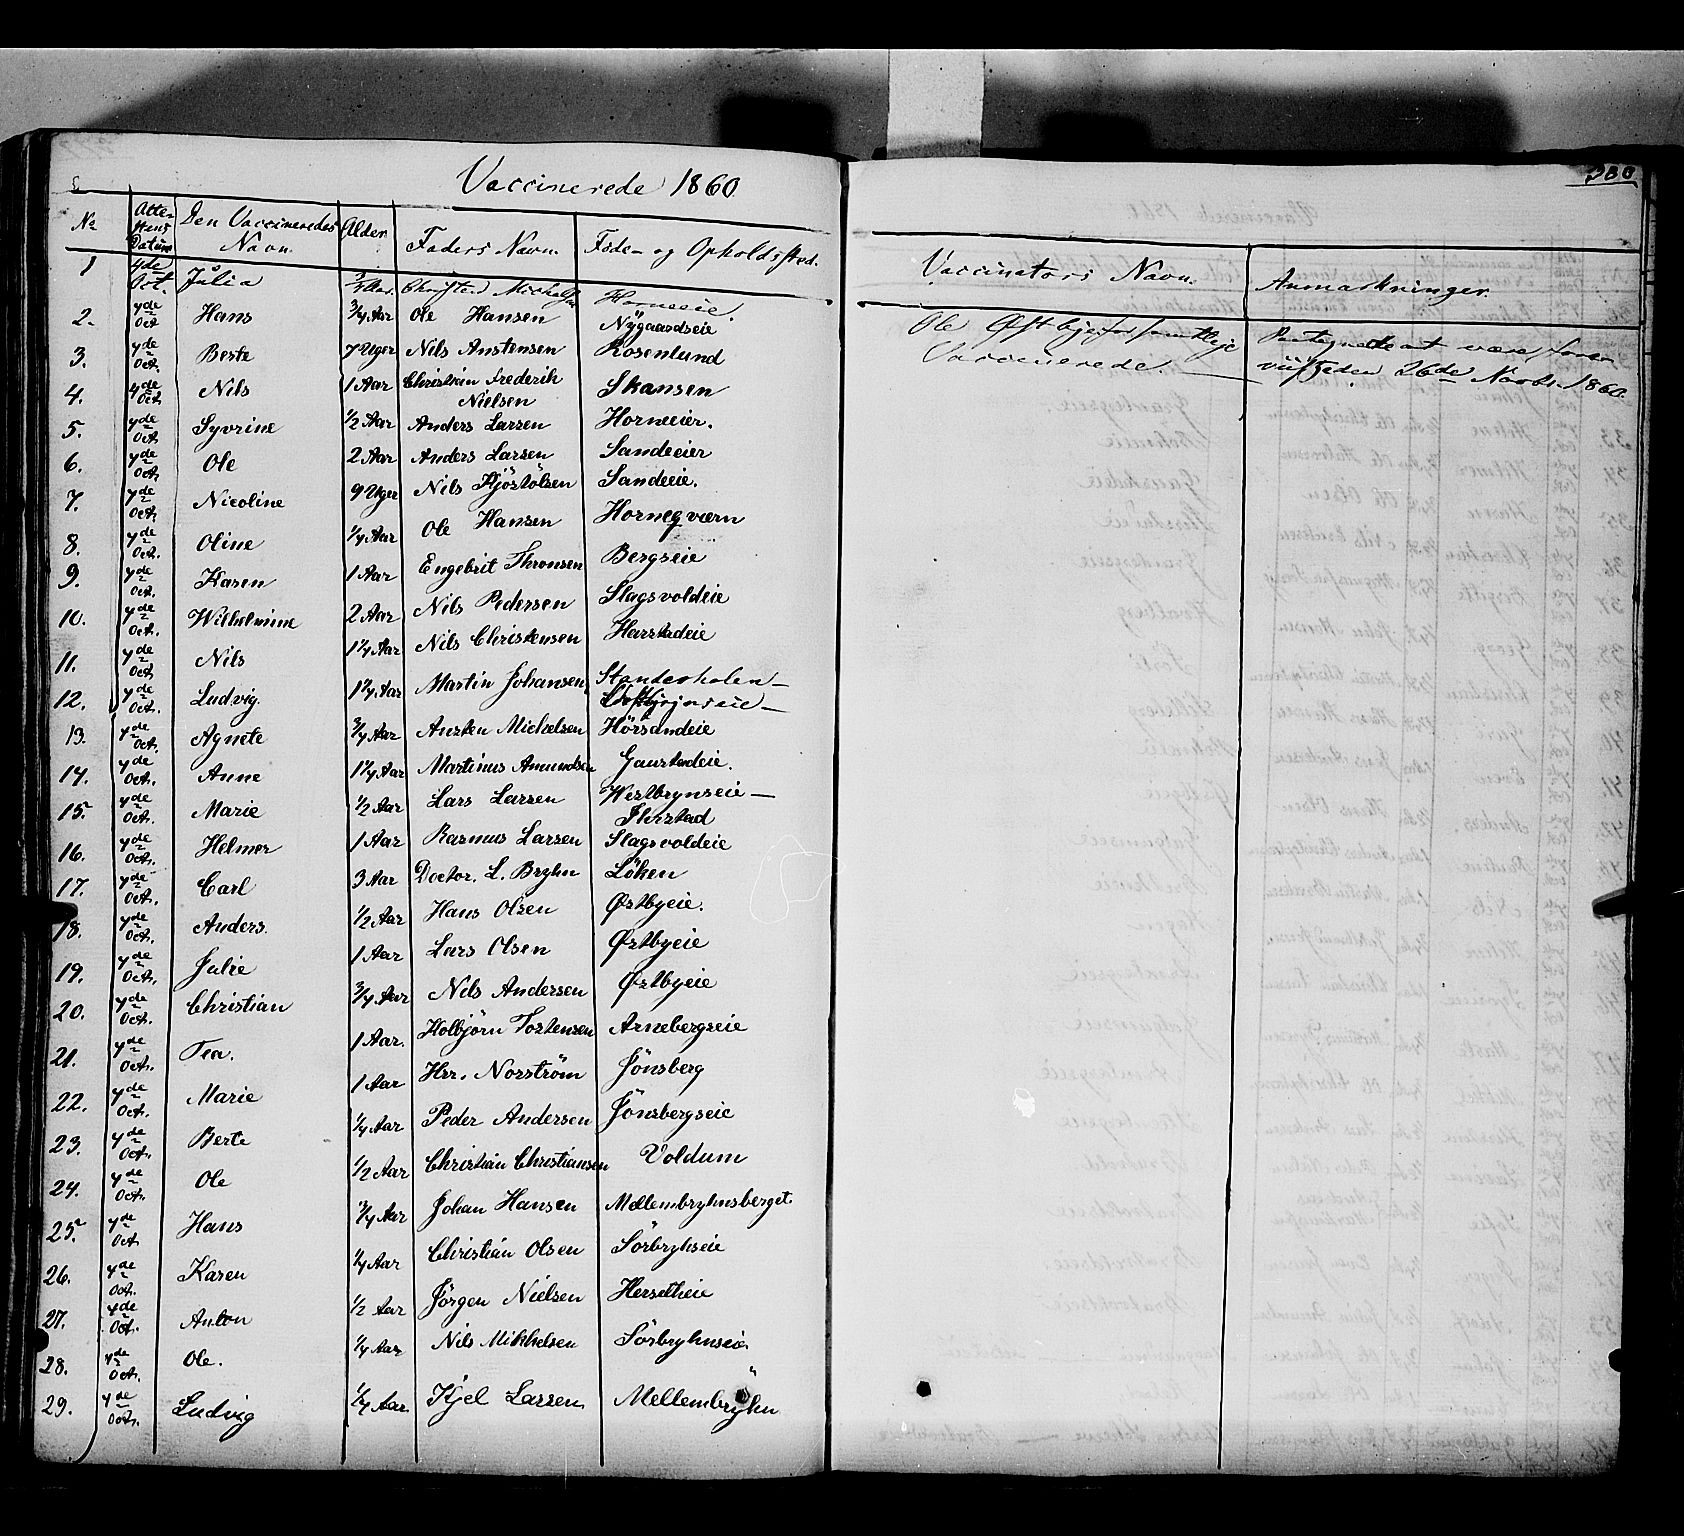 Vaccinerede 1860
380
No Atte-stens Datum Den Vaccineredes Navn. Alder Faders Navn. Føde- og Opholdssted.
Vaccinators Navn. Anmærkninger.
1 4de Oct. Julia Aar. Christen Horneeie.
2. 4de Oct Hans 3/4 Aar Ole Hansen Nygaardseie
3. 4de Oct. Berte 7 Uger Nils Anstensen Rosenlund
4. 4de Oct Nils 1 Aar Christian Frederik Nielsen Skansen
5. 4de Oct. Syvrine 1/2 Aar Anders Larsen Horneeier.
6. 4de Oct. Ole 2 Aar Anders Larsen Sandeeier
7. 4de Oct. Nicoline 9 Uger Nils Kjöstölsen Sandeeie.
8. 4de Oct. Oline 1/4 Aar Ole Hansen Horneqværn
9. 4de Oct. Karen 1 Aar Engebrit Thronsen Bergseie
10. 4de Oct. Wilhelmine 2 Aar Nils Pedersen Slagsvoldeie
11. 4de Oct. Nils 1 1/4 Aar Nils Christensen Harstadeie
12. 4de Oct. Ludvig. 1 1/4 Aar Martin Johansen Standerholen-
13. 4de Oct. Agnete 3/4 Aar Austen Michelsen Hörsandeie
14. 4de Oct. Anne 1 1/4 Aar Martinus Amundsen Gaustadeie.
15. 4de Oct. Marie 1/2 Aar Lars Larsen Westbrynseie-
16. 4de Oct. Helmer 1 Aar Rasmus Larsen Slagsvoldeie
17. 4de Oct. Carl 3 Aar Doctor. L. Bryhn Löken
18. 4de Oct. Anders. 1/2 Aar Hans Olsen Østbyeie.
19. 4de Oct. Julie 1 Aar Lars Olsen Østbyeie
20. 4de Oct. Christian 3/4 Aar Nils Andersen Østbyeie
21. 4de Oct. Tea. 1 Aar. Kolbjörn Tostensen Arnebergseie
22. 4de Oct. Marie 1 Aar Hrr. Norström Jönsberg
23. 4de Oct. Berte 1/4 Aar Peder Andersen Jönsbergseie
24. 4de Oct. Ole 1/2 Aar Christian Christiansen Voldum
25. 4de Oct. Hans 3/4 Aar Johan Hansen Mellembryhnsberget.
26. 4de Oct. Karen 1/4 Aar Christian Olsen Sörbryhseie
27. 4de Oct. Anton 1/2 Aar Jörgen Nielsen Hersetheie
28. 4de Oct. Ole. 1/4 Aar Nils Mikkelsen Sörbryhnseie
29. 4de Oct. Ludvig 1/4 Aar Kjel Larsen Mellembryhn
Ole Østbye for samtlige
Vaccinerede.
at være
den 26de Novbr. 1860.